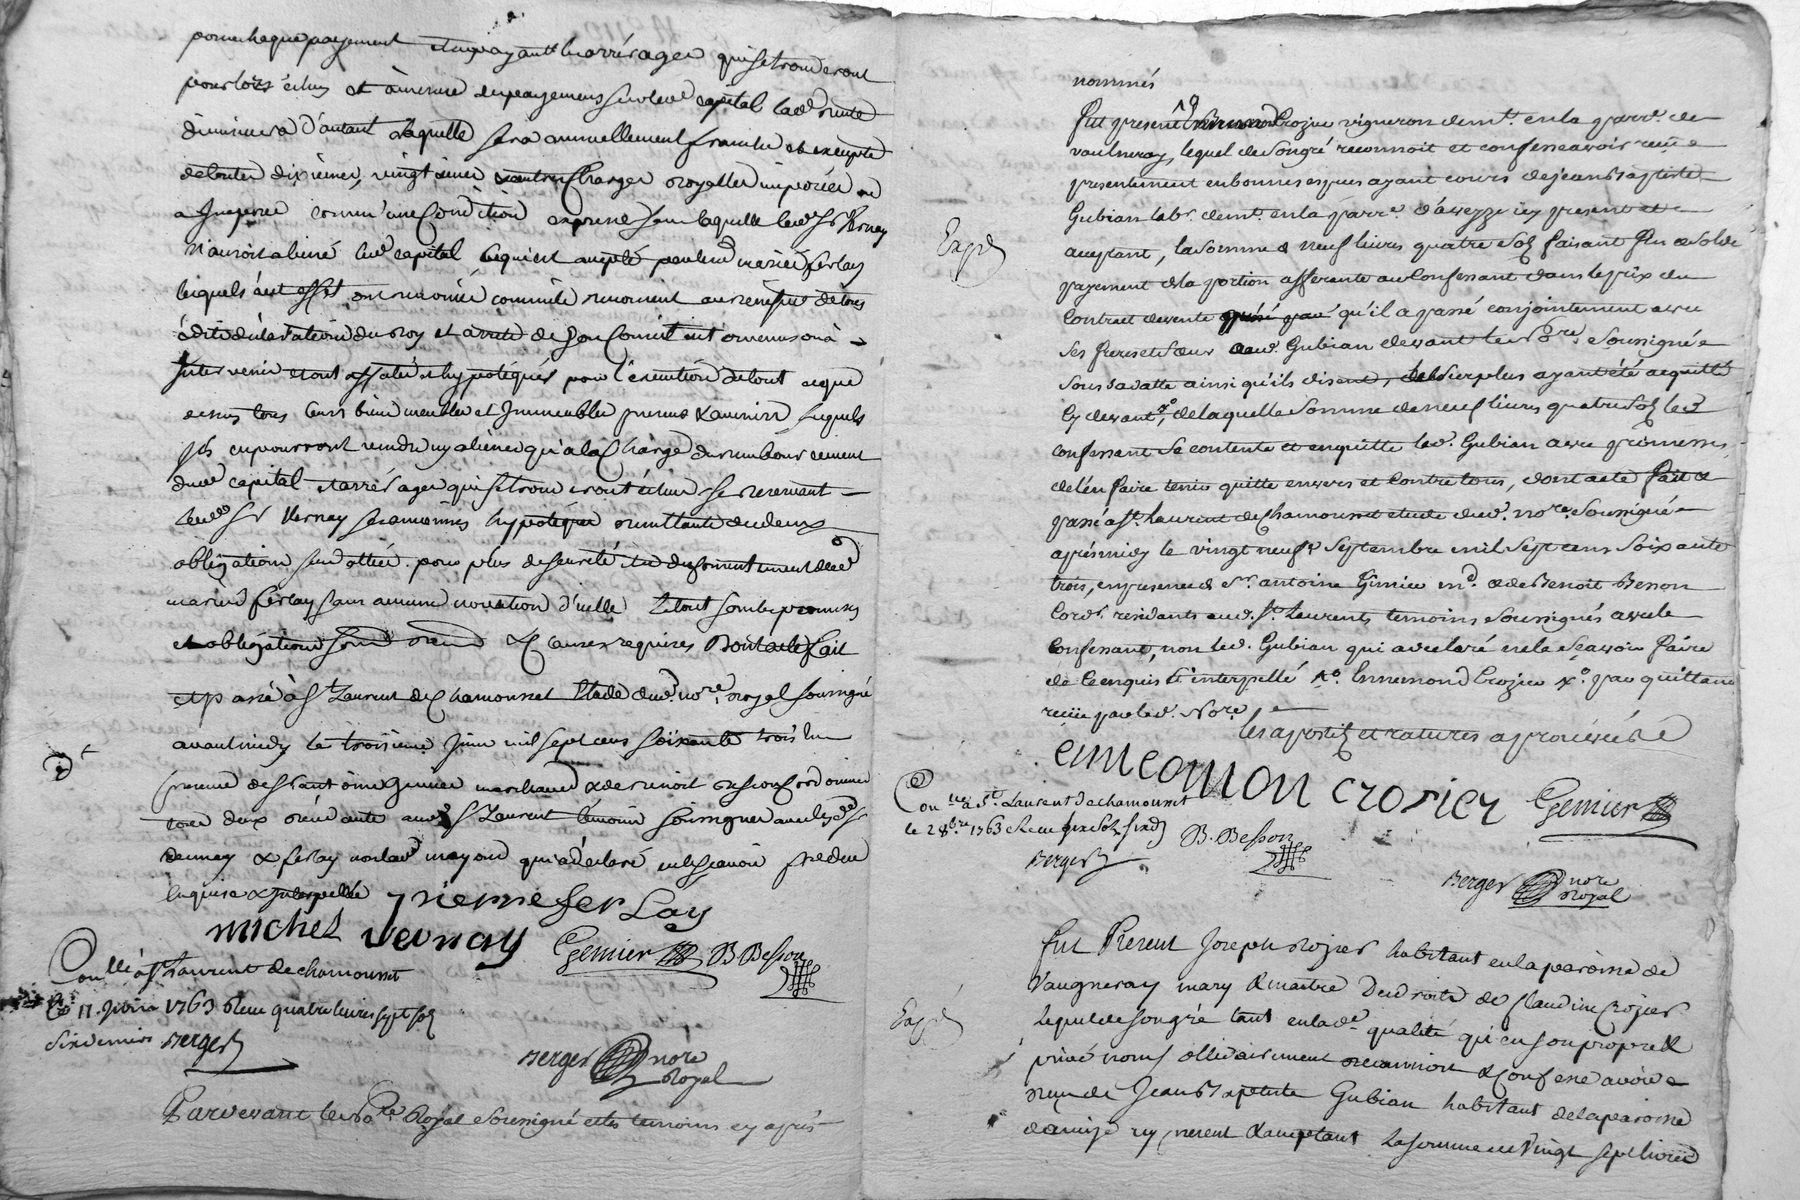 pour chaque payement et en payant les arrérages qui se trouveront
pour lors échus et à mesure des payemens sur led. capital lad. rente
diminuera d'autant laquelle sera annuellement franche et exempte
de toutes dixièmes, vingtièmes et autres charges royalles imposées ou
a Imposer comm'une Condition expresse sans laquelle led. Sr Vernay
n'auroit aliéné led. capital
édits déclarations du Roy et arrets de son Conseil intervenus ou à
Intervenir et ont affectés et hypotéqués pour l'exécution de tout ce que
dessus tous leurs biens meubles et Immeubles presens & avenir lesquels
Ils ne pourront vendre ny aliéner qu'à la Charge du remboursement
dud. capital et arrérages qui se trouveront échus se reservant
led. Sr Vernay ses anciennes hypotéques resultantes des deux
obligations sus dattées pour plus de seureté et du consentement desd.
mariés ferlay sans aucune novation d'icelle Le tout sous les promesses
et obligations & Causes requises Dont acte fait
et passé à St Laurent de Chamousset Etude dud. nore. royal soussigné
avant midy le troisieme Juin mil sept cens soixante trois En
presence de Sr antoine Gemier marchand & de benoit besson Cordonnier
tous deux residants aud. St Laurent témoins soussignés avec lesd. Srs
Vernay & ferlay non lad. mayoud qui a déclaré ne le sçavoir de ce
Enquise & Interpellée
pierre fer Lay
michel vernay Gemier B. Besson
Conllé à St Laurent de chamousset
Le 11. Juin 1763 Receu quatre livres sept sols
six deniers Berger
Berger nore Royal
Pardevant le No.re Royal soussigné et les temoins cy après
nommés
fut present Crozier vigneron demt. en la parr.e de
vaulneray, lequel de son gré reconnoit et confesse avoir reçu
presentement en bonnes especes ayant cours de jean baptiste
Gubian labr. demt. en la parr.e d'aveyze icy present et
aceptant, la somme de neuf livres quatre sols faisant fin de solde
payement de la portion afferente au Confessant dans le prix du
Contract de vente qu'il a passé conjointement avec
ses freres et soeur aud. Gubian devant le No.re soussigné
sous sa datte ainsi qu'ils disent, le surplus ayant été acquitté
cy devant, de laquelle somme de neuf livres quatre sols led.
confessant se contente et en quitte led. Gubian avec promesses
de l'en faire tenir quitte envers et contre tous, dont acte fait &
passé a St. laurent de Chamousset etude dud. no.re soussigné
aprés midy le vingt neuf septembre mil sept cens soixante
trois, en presence de Sr. antoine Gemier md. & de Benoit Besson
Cordr. residants aud. St Laurent, temoins soussignés avec le
Confessant, non led. Gubian qui a declaré ne le sçavoir faire
de ce enquis et interpellé Ennemond Crozier par quittance
reçüe par led. No.re
les apostils et ratures aprouvés
Exped.
ennemon crosier Gemier
Con.llé à St. Laurent de chamousset
le 28bre 1763 Receu
Berger B. Besson
Berger nore Royal
Fut Present Joseph rozier habitant en la paroisse de
Vaugneray mary & maitre des droits de Claudine Crozier
Lequel de son gré tant en lad. qualité qu'en son propre &
privé nom sollidairement reconnoit & confesse avoir
reçu de Jean Baptiste Gubian habitant de la paroisse
d'aveize icy present & aceptant La somme de Vingt sept livres
Exped.